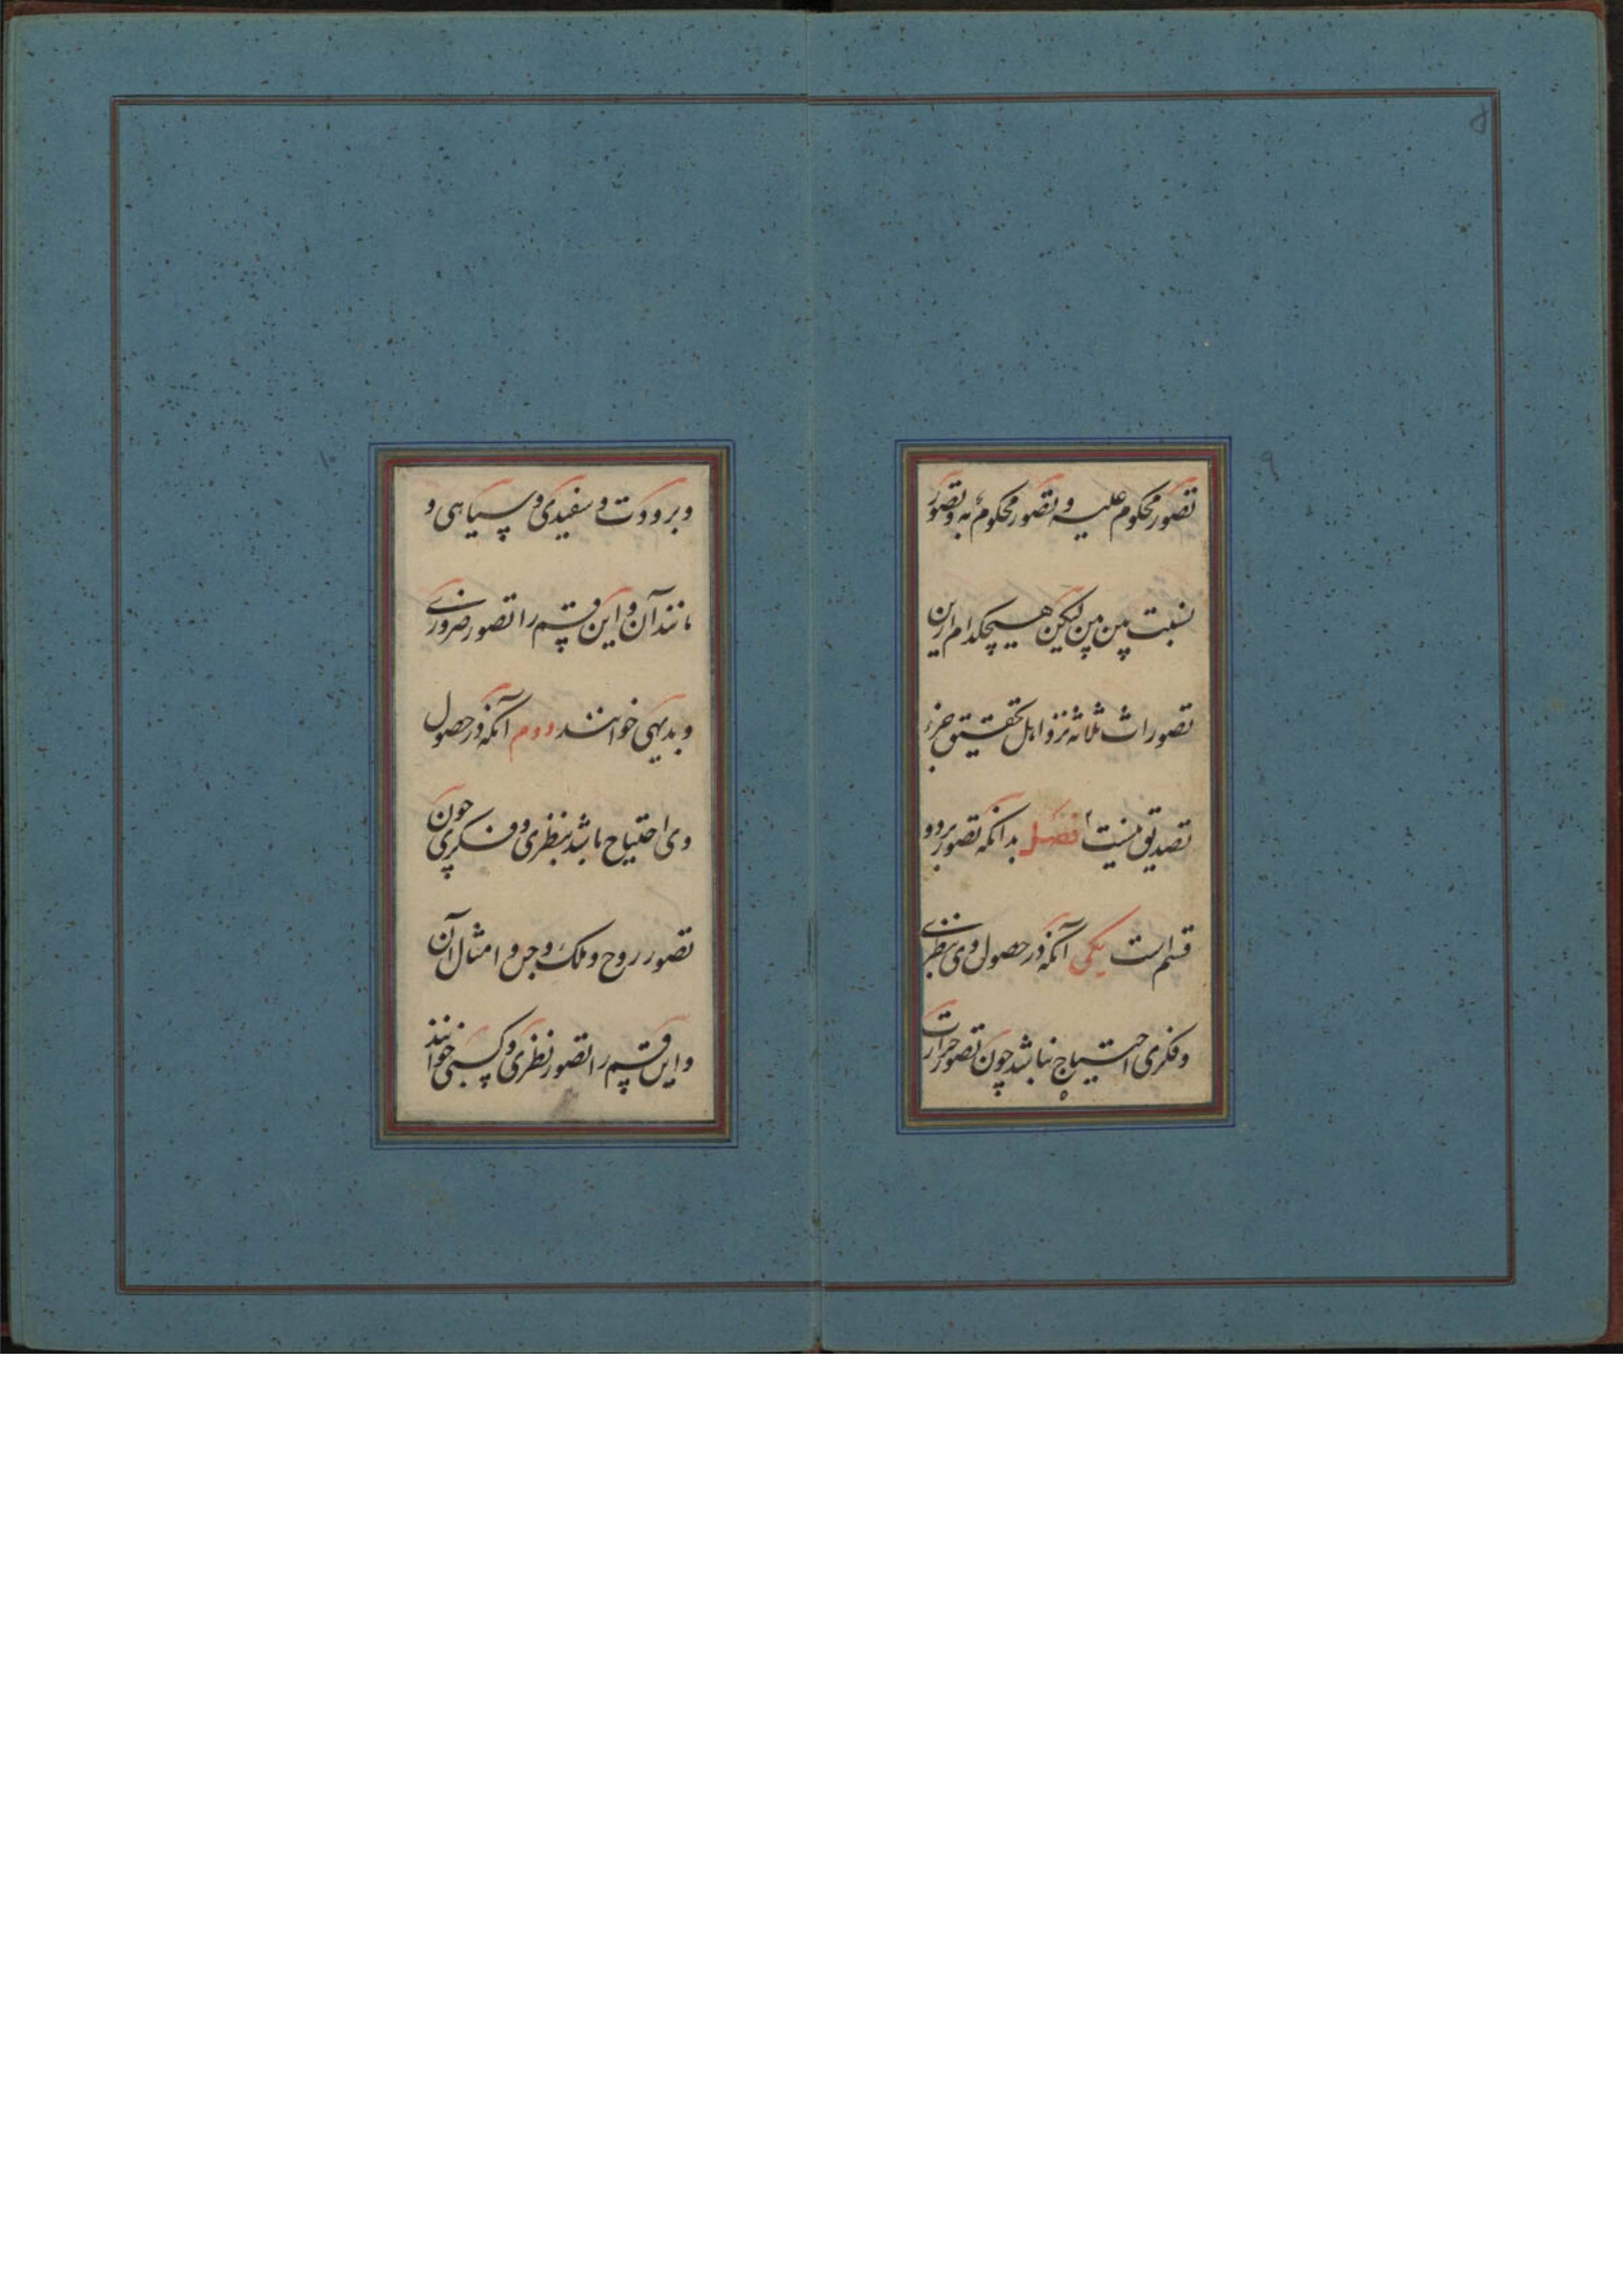 تصور محکوم علیه و تصور محکوم به و تصور
نسبت بین بین لیکن هیچکدام ازین
تصورات ثلاثه نزد اهل تحقیق جزء
تصدیق نیست فصل بدانکه تصور بر دو
قسم است یکی آنکه در حصول وی بنظری
و فکری احتیاج نباشد چون تصور حرارت
و برودت و سفیدی و سیاهی و
مانند آن و این قسم را تصور ضروری
و بدیهی خوانند دوم آنکه در حصول
وی احتیاج باشد بنظری و فکری چون
تصور روح و ملک و جن و امثال آن
و این قسم را تصور نظری و کسبی خوانند